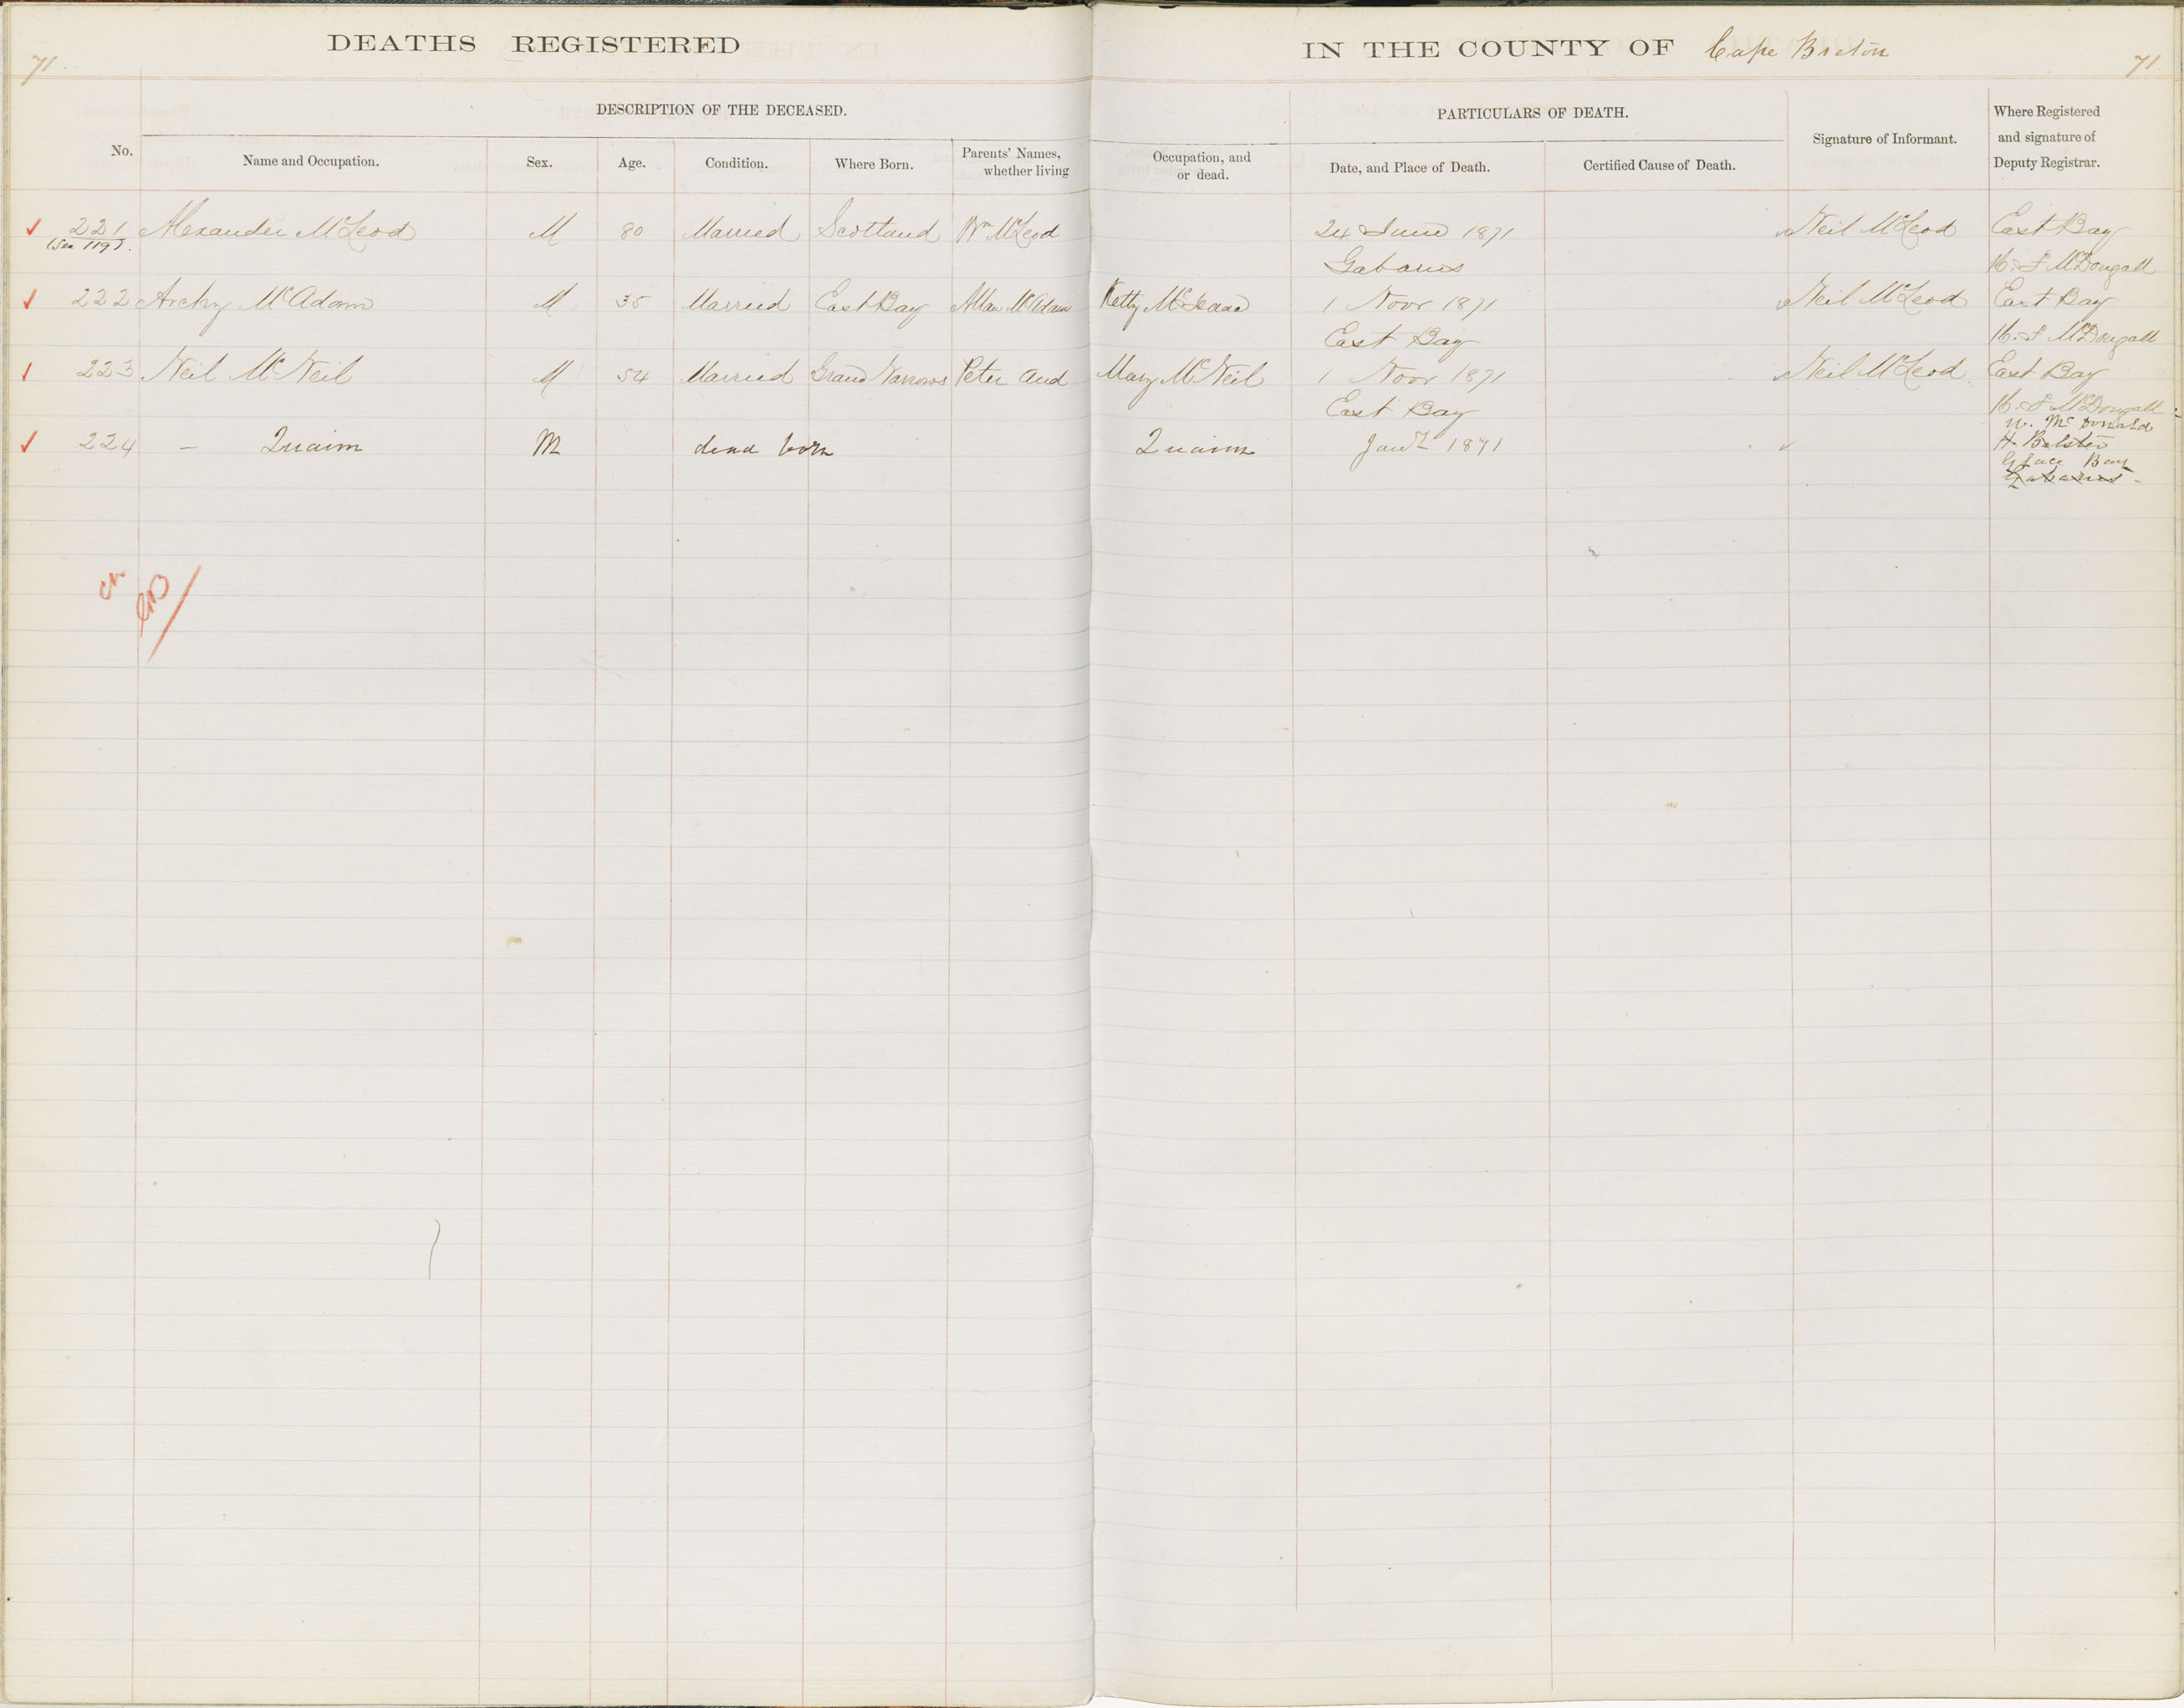 DEATHS REGISTERED IN THE COUNTY OF Cape Breton
71. 71.
DESCRIPTION OF THE DECEASED. PARTICULARS OF DEATH.
No. Name and Occupation. Sex. Age. Condition. Where Born. Parents' Names, whether living Occupation, and or dead. Date, and Place of Death. Certified Cause of Death. Signature of Informant. Where Registered and signature of Deputy Registrar.
221 Alexander McLeod M 80 Married Scotland Wm McLeod 24 June 1871 Neil McLeod East Bay
(See 119). Gabarus H. F McDougall
222 Archy McAdam M 35 Married East Bay Allan McAdam Ketty McIsaac 1 Novr 1871 Neil McLeod East Bay
East Bay H. F McDougall
223 Neil McNeil M 54 Married Grand Narrows Peter and Mary McNeil 1 Novr 1871 Neil McLeod East Bay
East Bay H. F McDougall
224 – Quaim M dead born Quaim Jany 1871 McDonald
Glace Bay
Gabarus